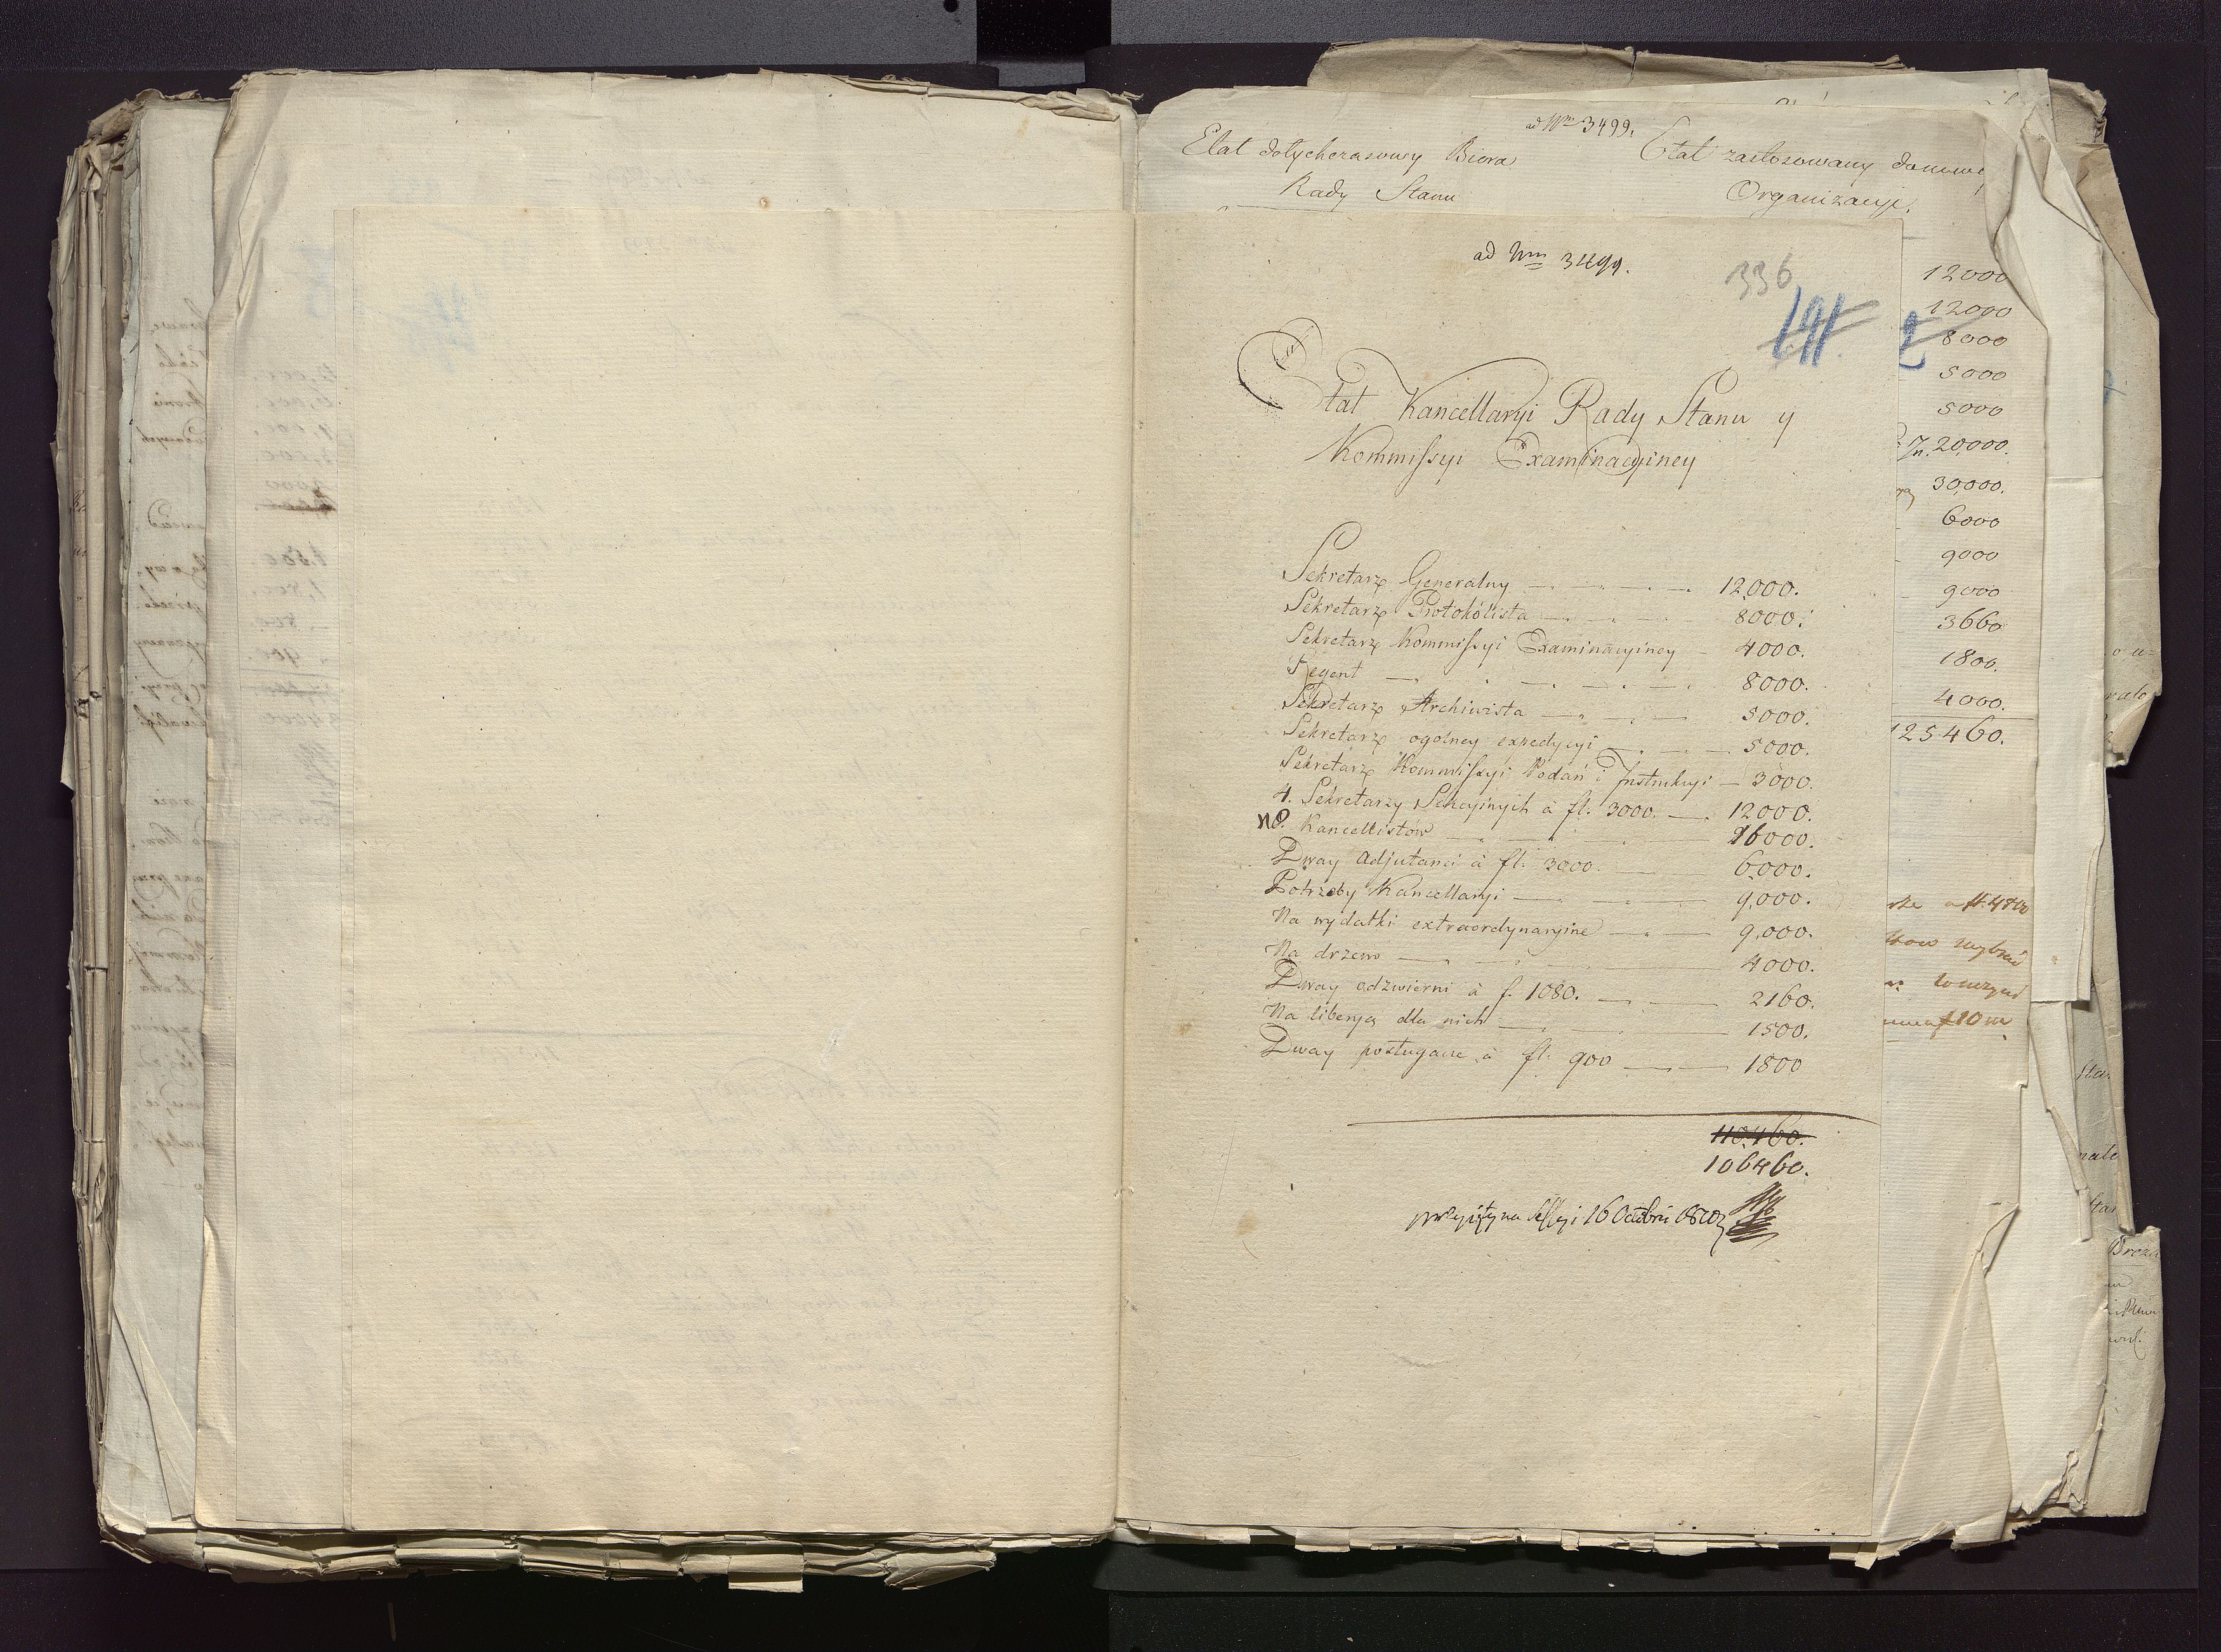 ad Nrm 3499.
Etat dotychczasowy Biora
Rady Stanu
Etat zastosowany do nowey
Organizacyi.
12000
12000
8000
5000
5000
20,000.
30,000.
6000
9000
9000
3660
1800.
4000.
125460.
ad Nrm 3499.
336
191
Etat Kancellaryi Rady Stanu y
Kommissyi Examinacyiney
Sekretarz Generalny 12,000.
Sekretarz Protokólista 8000.
Sekretarz Kommissyi Examinacyiney 4000.
Regent 8000.
Sekretarz Archiwista 5000.
Sekretarz ogolney expedycyi 5000.
Sekretarz Kommissyi Podań i Instrukcyi 3000.
4. Sekretarzy Sekcyinych à fl. 3000. 12000.
8. Kancellistów 16000.
Dway Adjutanci à fl. 3000. 6,000.
Potrzeby Kancellaryi 9,000.
Na wydatki extraordynaryine 9,000.
Na drzewo 4000.
Dway odzwierni à f. 1080. 2160.
Na liberyą dla nich 1500.
Dway posługacze à fl. 900 1800
110,460.
106460.
przyięty na Sessyi 16 Octobris 1810